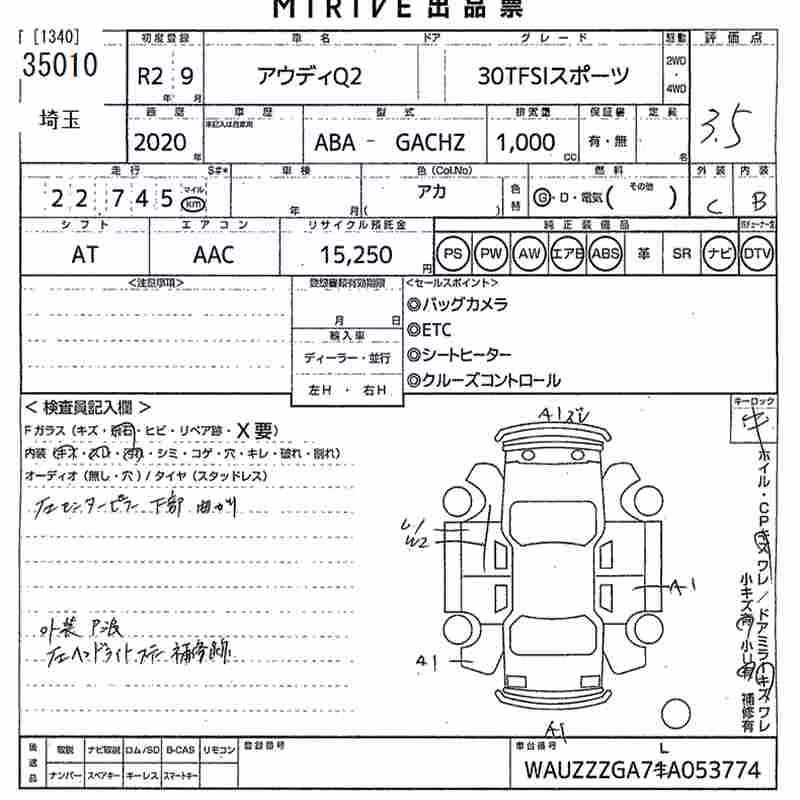 MIRIVE 出品票
[1340]
35010
埼玉
初度登録 車名 ドア グレード 駆動 評価点
R2 9 アウディQ2 30TFSIスポーツ 2WD・4WD
年 月
3.5
車歴 型式 排気量 保証書 定員
2020 年 ABA - GACHZ 1,000 CC 有・無 名
走行 車検 色(Col.No) 燃料 外装 内装
22,745 マイル km 年 月 アカ 色替 G・D・電気(その他) C B
シフト エアコン リサイクル預託金 純正装備品
AT AAC 15,250 円 PS PW AW エアB ABS 革 SR ナビ DTV
<注意事項>
月 日
輸入車
ディーラー・並行
左H・右H
<セールスポイント>
◎バックカメラ
◎ETC
◎シートヒーター
◎クルーズコントロール
<検査員記入欄>
Fガラス(キズ・飛石・ヒビ・リペア跡・X要)
内装(キズ・スレ・汚れ・シミ・コゲ・穴・キレ・破れ・割れ)
オーディオ(無し・穴)/タイヤ(スタッドレス)
左センターピラー下部曲がり
外装
左ヘッドライトステー補修跡
キーロック
A1
U1
W2
A1
A1
A1
ホイル・CPキズワレ/ドアミラーキズワレ
小キズ有 小U有 補修有
後送品 取説 ナビ取説 ロム/SD B-CAS リモコン
ナンバー スペアキー キーレス スマートキー
登録番号
車台番号 L
WAUZZZGA7
A053774